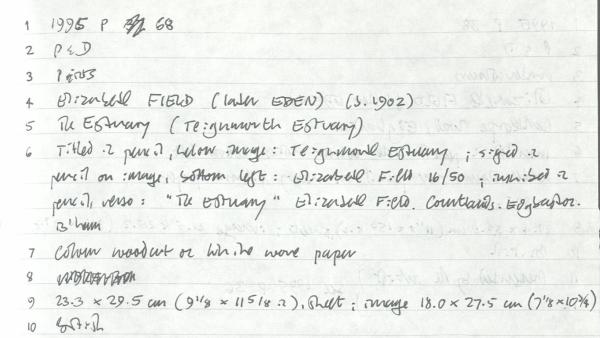 1 1995 P 68
2 P & D
3 Prints
4 Elizabeth FIELD (later EDEN) (b.1902)
5 The Estuary (Teignmouth Estuary)
6 Titled in pencil, below image: Teignmouth Estuary ; signed in
pencil on image, bottom left: Elizabeth Field 16/50 ; inscribed in
pencil, verso: "The Estuary" Elizabeth Field. Courtlands. Edgbaston.
B'ham
7 Colour woodcut on white wove paper
8
9 23.3 × 29.5 cm (9 1/8 × 11 5/8 in), sheet ; image 18.0 × 27.5 cm (7 1/8 × 10 3/4)
10 British